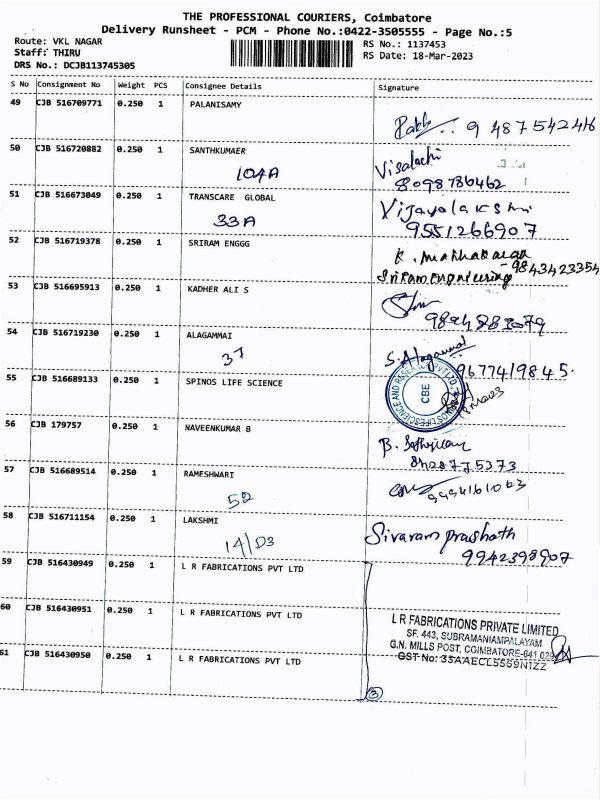 THE PROFESSIONAL COURIERS, Coimbatore
Delivery Runsheet - PCM - Phone No.:0422-3505555 - Page No.:5
Route: VKL NAGAR
RS No.: 1137453
Staff: THIRU
RS Date: 18-Mar-2023
DRS No.: DCJB113745305
S No Consignment No Weight PCS Consignee Details Signature
49 CJB 516709771 0.250 1 PALANISAMY
9487542416
50 CJB 516720882 0.250 1 SANTHKUMAER
104A
Visalachi
8098786462
51 CJB 516673049 0.250 1 TRANSCARE GLOBAL
33A
Vijayalakshmi
9551266907
52 CJB 516719378 0.250 1 SRIRAM ENGGG
Sriram Engineering 9843423354
53 CJB 516695913 0.250 1 KADHER ALI S
54 CJB 516719230 0.250 1 ALAGAMMAI
37
S. Alagammal
9677419845.
55 CJB 516689133 0.250 1 SPINOS LIFE SCIENCE
CBE
56 CJB 179757 0.250 1 NAVEENKUMAR B
57 CJB 516689514 0.250 1 RAMESHWARI
52
58 CJB 516711154 0.250 1 LAKSHMI
14/D3
Sivaram prashath
9942398907
59 CJB 516430949 0.250 1 L R FABRICATIONS PVT LTD
60 CJB 516430951 0.250 1 L R FABRICATIONS PVT LTD
61 CJB 516430950 0.250 1 L R FABRICATIONS PVT LTD
L R FABRICATIONS PRIVATE LIMITED
SF. 443, SUBRAMANIAMPALAYAM
G.N. MILLS POST, COIMBATORE-641 029
GST No: 33AAECL5569N1ZZ
3